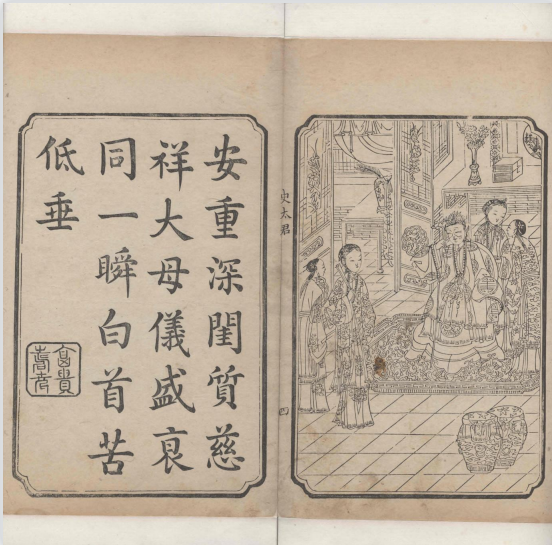 史太君
四
安重深閨質慈
祥大母儀盛衰
同一瞬白首苦
低垂
富貴
壽考